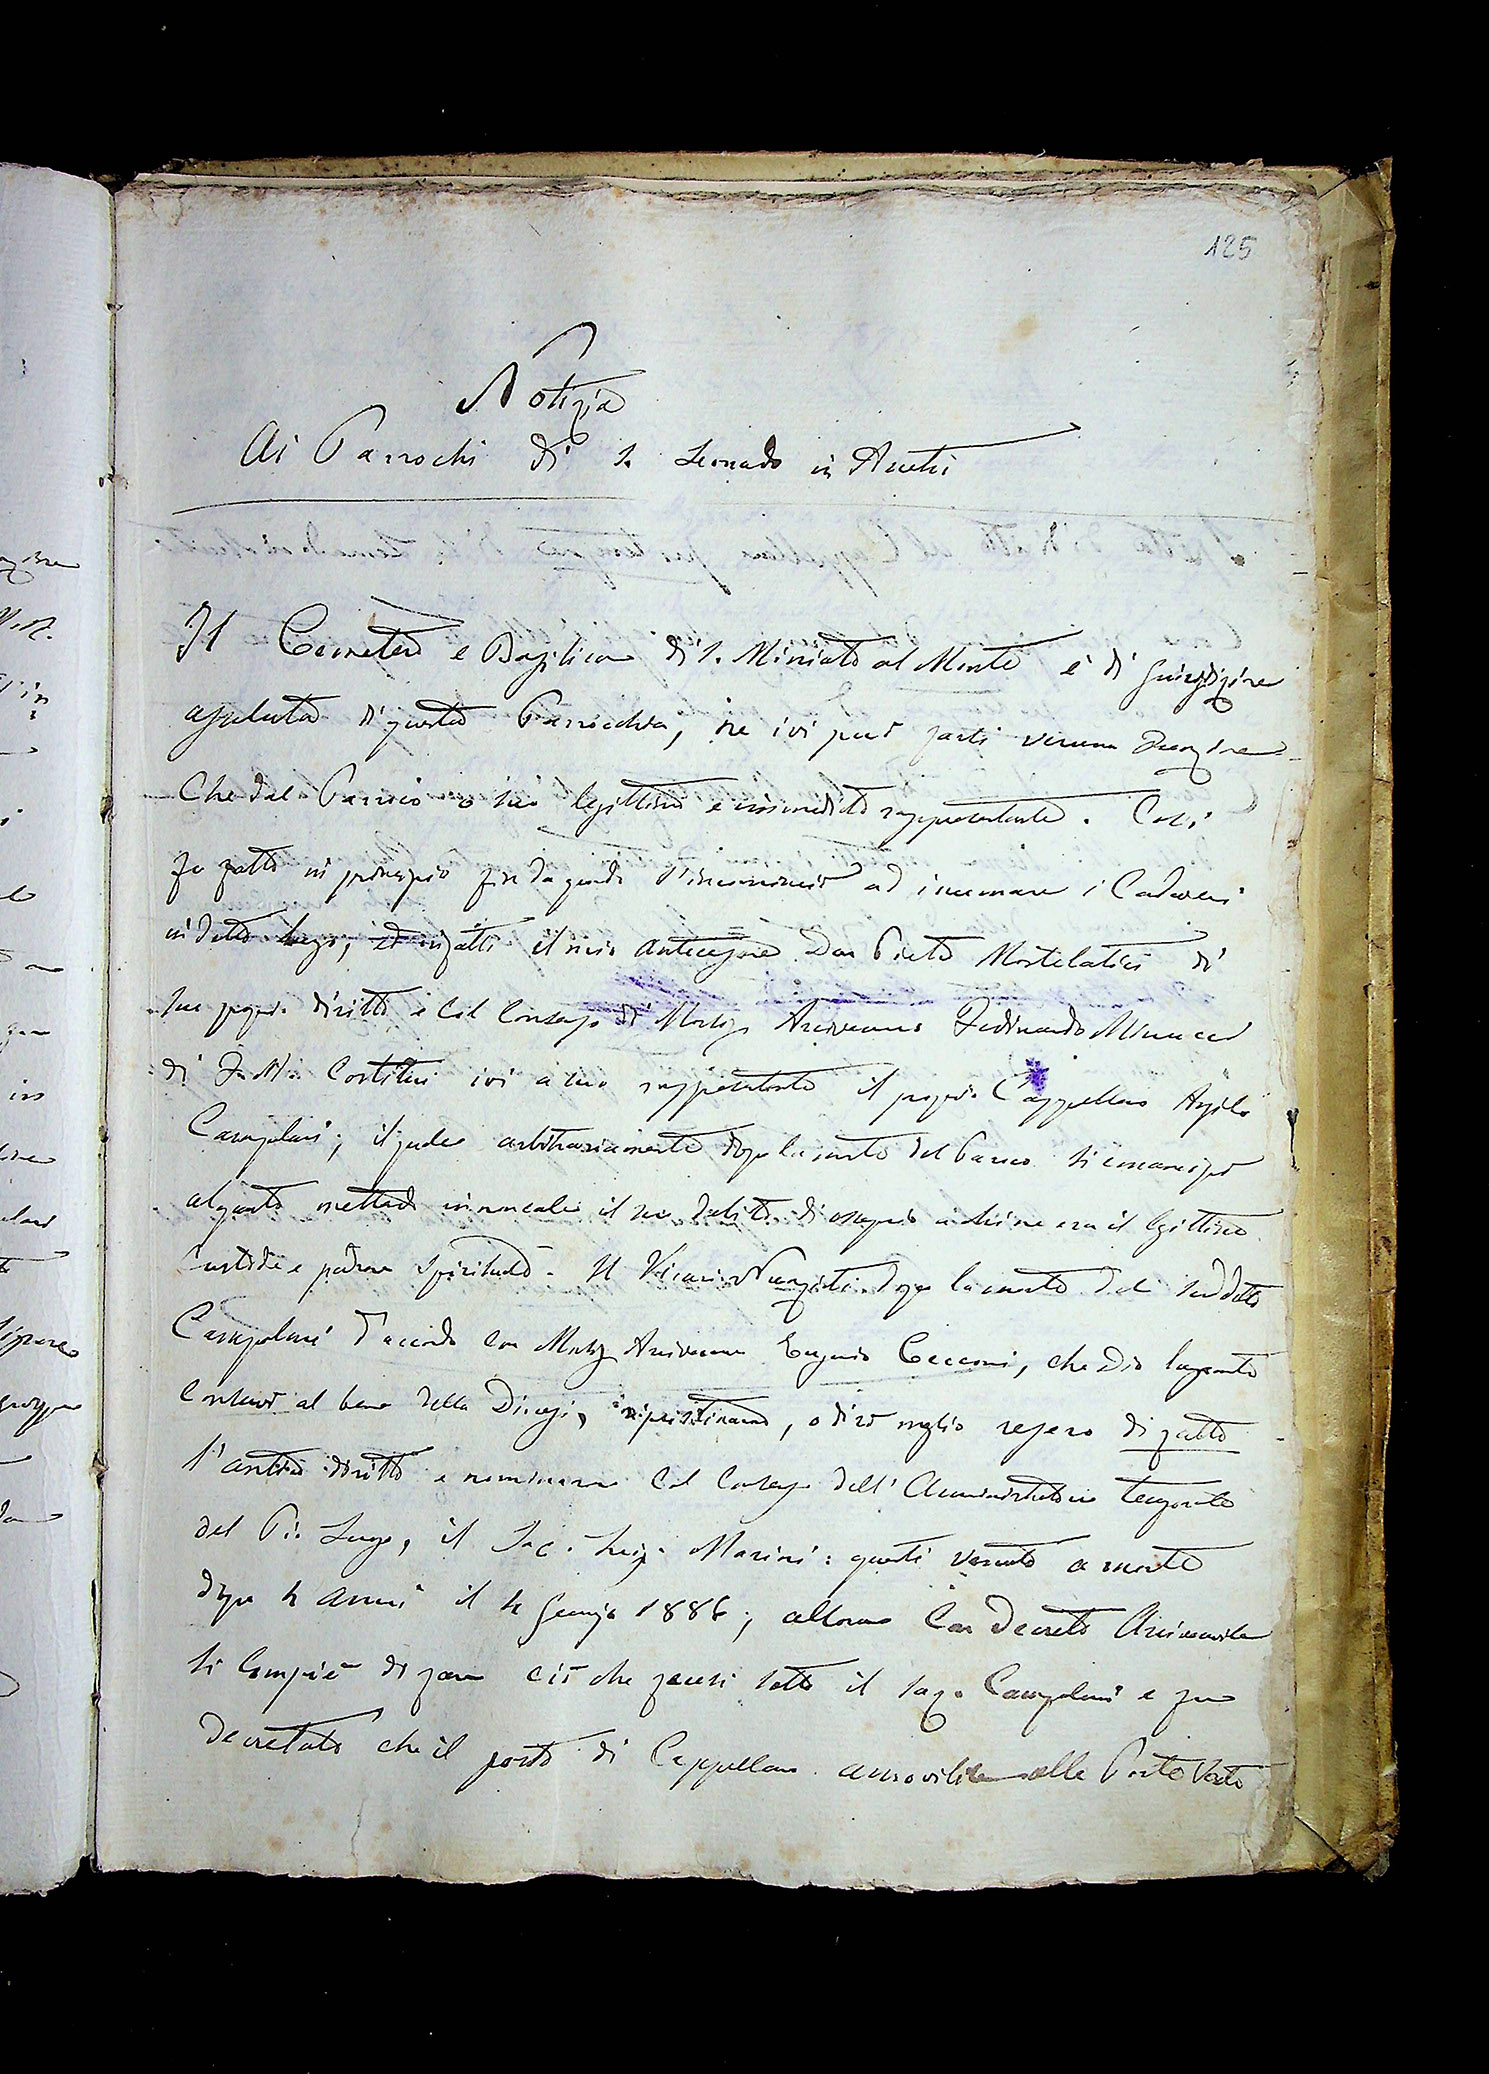 125
Notizia
Ai Parrochi di S. Leonardo in Arcetri
Il Cemetero e Basilica di S. Miniato al Monte è di Giurisdizione
assoluta di questa Parrocchia, ne ivi può farsi veruna funzione
che dal Parroco o suo legittimo e immediato rappresentante. Così
fu fatto in principio fin da quando s'incominciò ad inumare i Cadaveri
in detto luogo, ed infatti il mio antecessore Don Pietro Mortelatici di
suo proprio diritto e col consenso di Monsig. Arcivescovo Ferdinando Minucci
di F. M. costituì ivi a suo rappresentante il proprio Cappellano Angelo
Campolmi, il quale arbitrariamente dopo la morte del Parroco si emancipò
alquanto mettendo in non cale il suo debito di ossequio a chi ne era il legittimo
Custode e padrone Spirituale. Il Vicario Nunziati dopo la morte del suddetto
Campolmi d'accordo con Monsig. Arcivescovo Eugenio Cecconi, che Dio lungamente
conservi al bene della Diocesi, ripristinarono, o dirò meglio resero di fatto
l'antico diritto e nominarono col consenso dell'Amministratore temporale
del Pio Luogo, il Sac. Luigi Marini: questi venuto a morte
dopo 4 anni il 4 Gennajo 1886, allora con decreto Arcivescovile
si compiè di fare ciò che fecesi sotto il Sac. Campolmi e fu
decretato che il posto di Cappellano amovibile alle Porte Sante